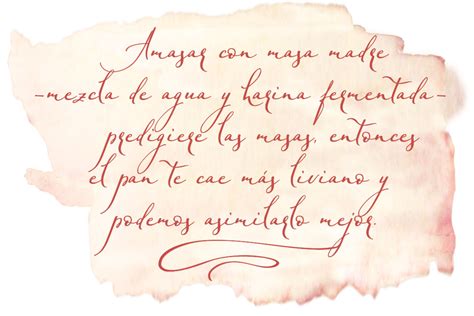 Amasar con masa madre
-mezcla de agua y harina fermentada-
predigiere las masas, entonces
el pan te cae más liviano y
podemos asimilarlo mejor.